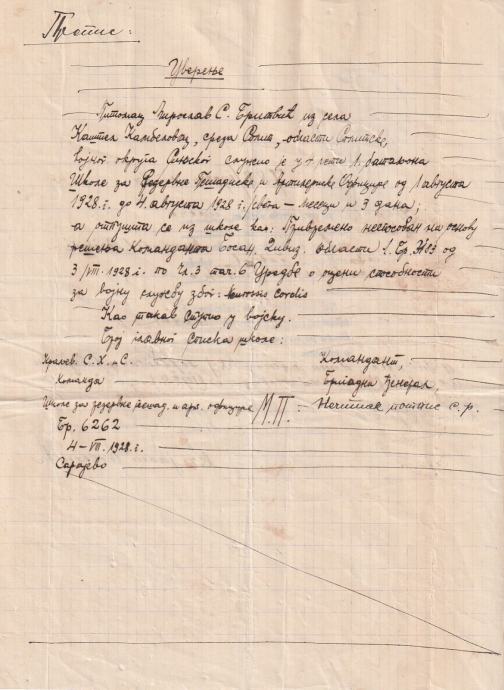 Препис:
Уверење
Питомац Мирослав С. Бритвић из села
Каштел Камбеловац, среза Сплит, области Сплитске,
војног округа Сињског служио је у чети 1. баталиона
Школе за Резервне Пешадиске и Артилериске Официре од 1 августа
1928.г. до 4 августа 1928 г. / свега – месеци и 3 дана;
а отпушта се из школе као: Привремено неспособан на основу
решења Команданта Босан. Дивиз. области Бр. од
3/VIII. 1928.г. по Чл. 3 тач. 6 Уредбе о оцени способности
за војну службу због: Neurosis cordis
Као такав ступио у војску.
Број главног списка школе:
Краљев. С. Х. и С. Командант,
Команда Бригадни Ђенерал,
Школе за резервне пешад. и арт. официре М.П. Нечитак потпис с.р.
Бр. 6262
4–VIII. 1928.г.
Сарајево